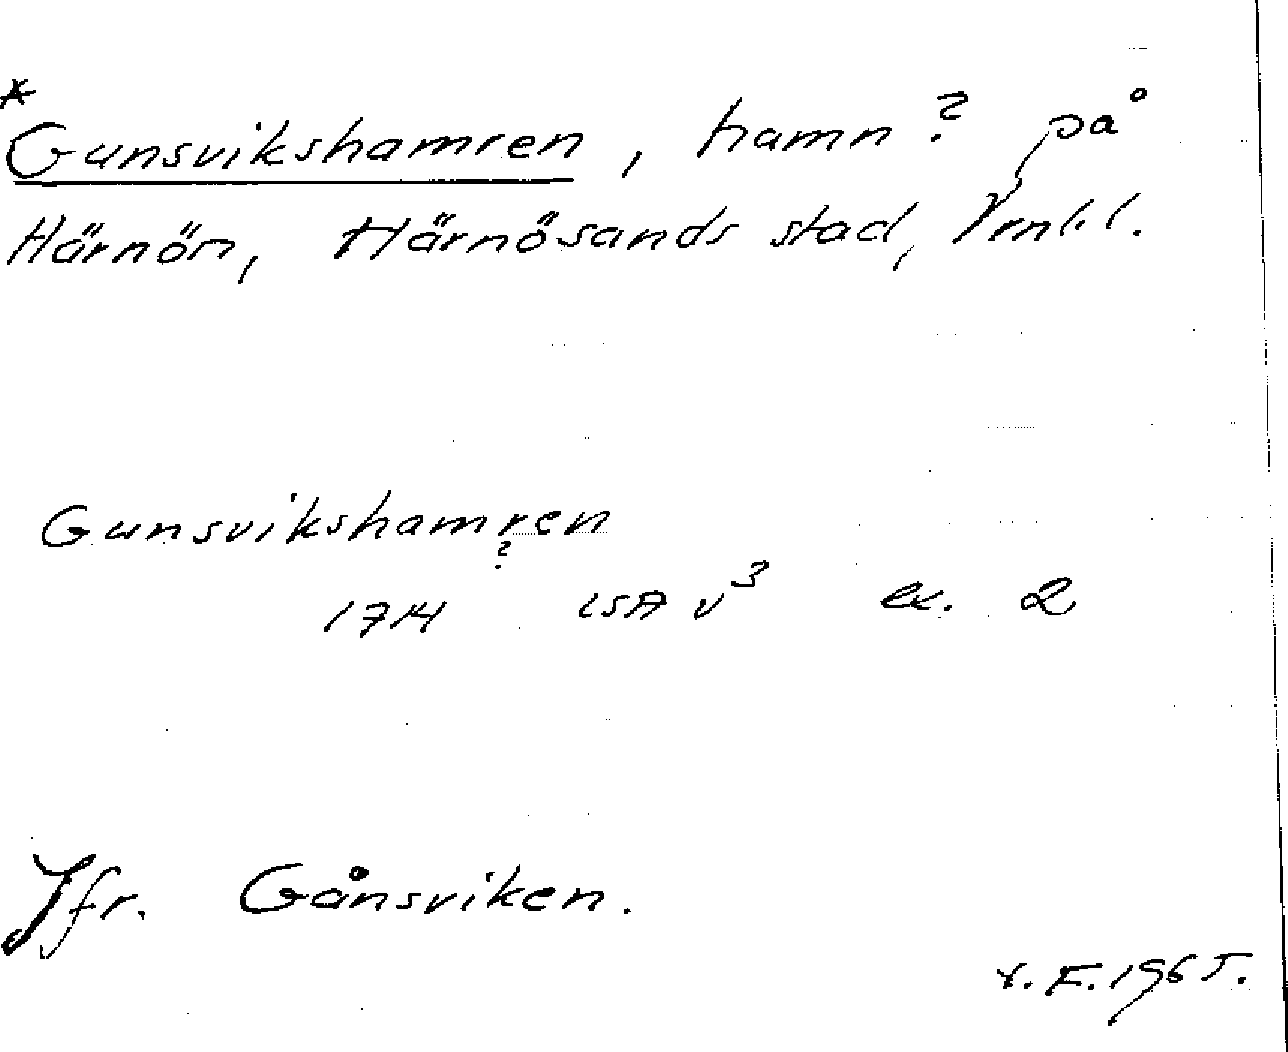 *
Gunsvikshamren, hamn? på
Härnön, Härnösands stad, Vrnl.l.
Gunsvikshamren
?
1714 LSA V³ ex. 2
Jfr. Gånsviken.
F. 1965.